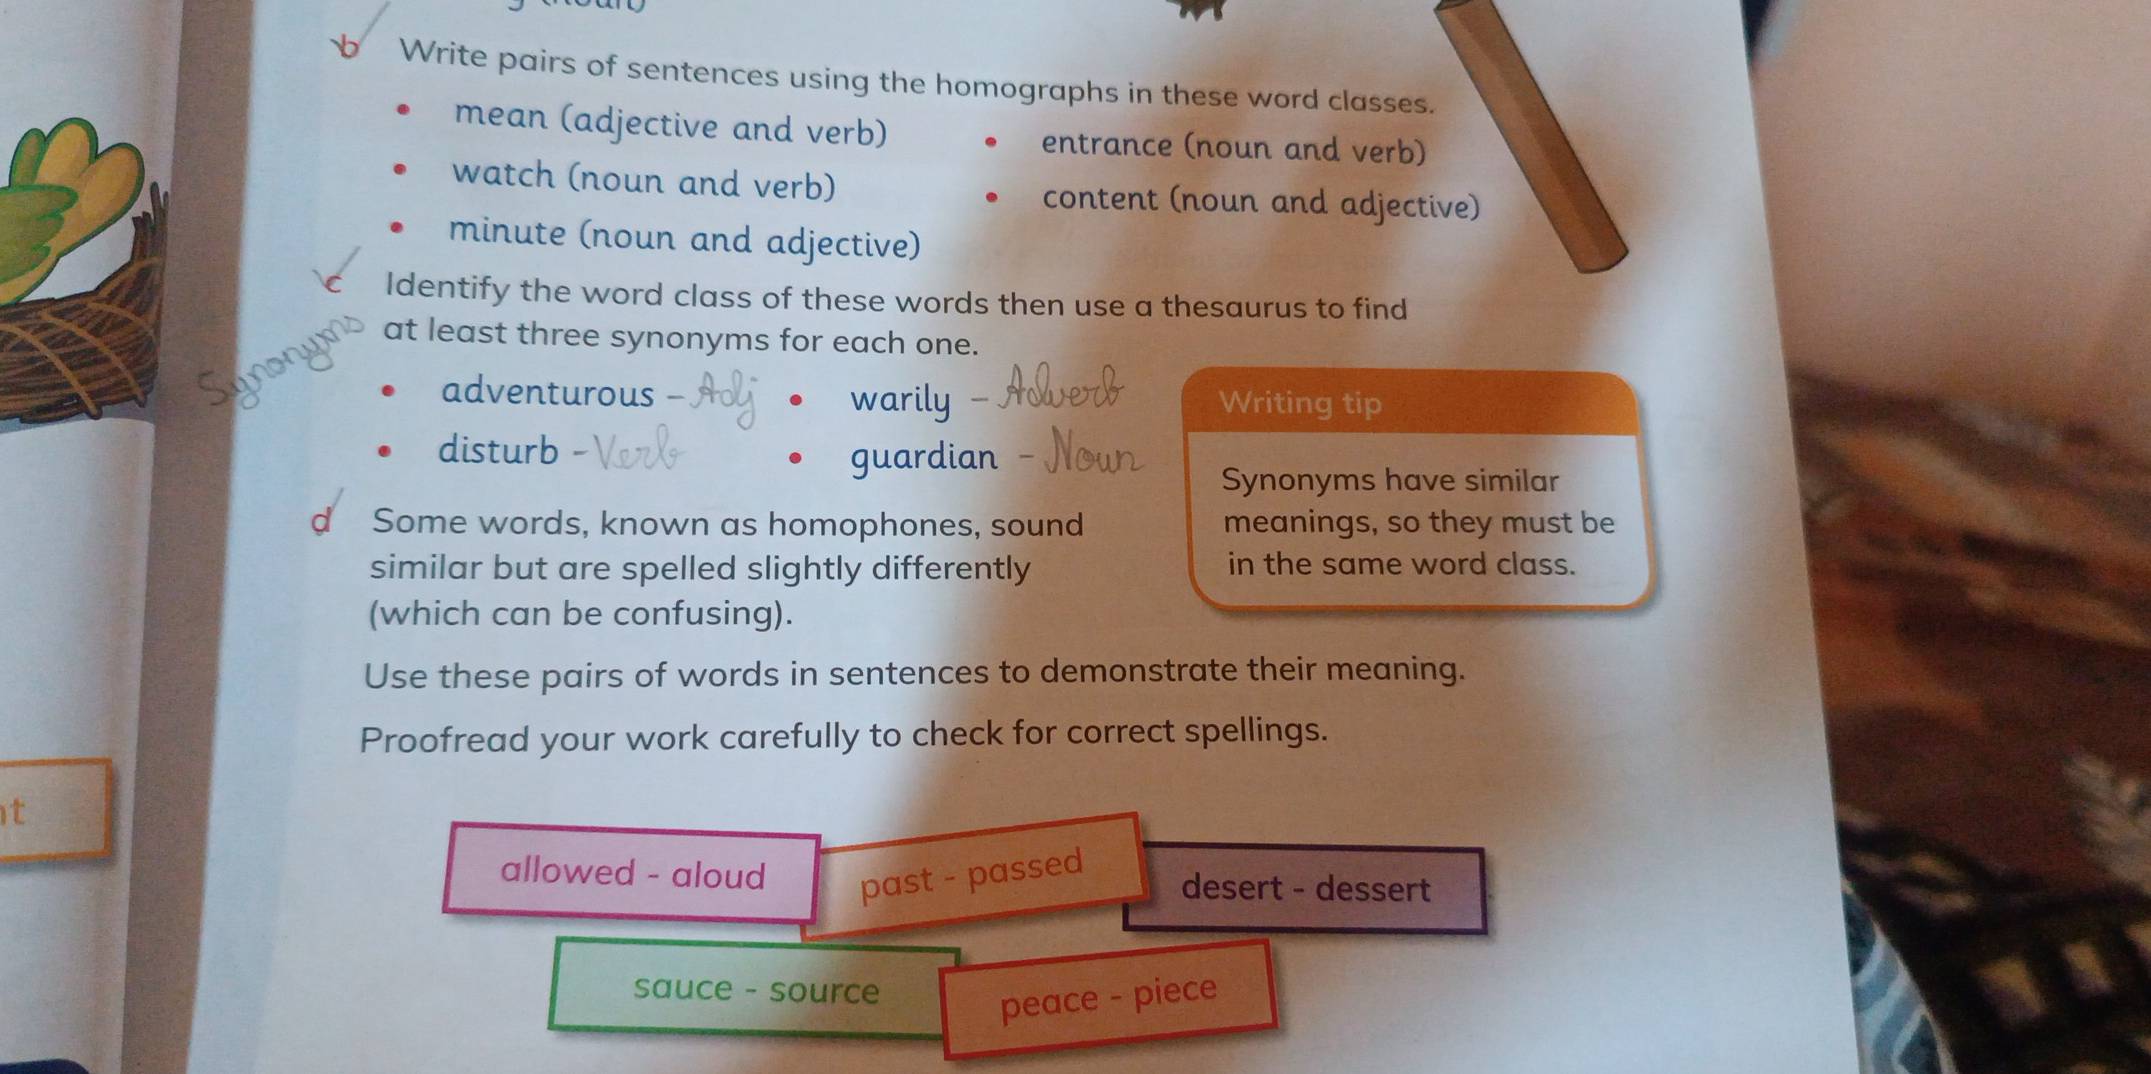 b Write pairs of sentences using the homographs in these word classes.
• mean (adjective and verb)
• entrance (noun and verb)
• watch (noun and verb)
• content (noun and adjective)
• minute (noun and adjective)
c Identify the word class of these words then use a thesaurus to find
at least three synonyms for each one.
Synonyms
• adventurous - Adj
• warily - Adverb
• disturb - Verb
• guardian - Noun
Writing tip
Synonyms have similar
meanings, so they must be
in the same word class.
d Some words, known as homophones, sound
similar but are spelled slightly differently
(which can be confusing).
Use these pairs of words in sentences to demonstrate their meaning.
Proofread your work carefully to check for correct spellings.
allowed - aloud
past - passed
desert - dessert
sauce - source
peace - piece